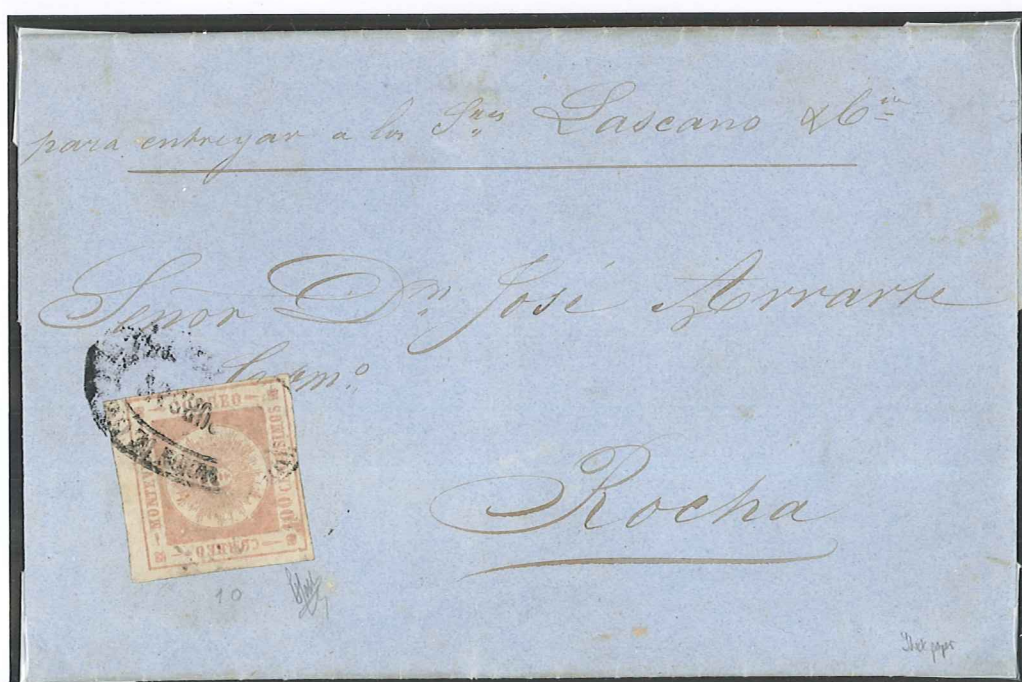 para entregar a los S.res Lascano & C.ia
Señor D.n José Arrarte
Rocha
CORREO
MONTEV
100 CENTESIMOS
CORREO
10